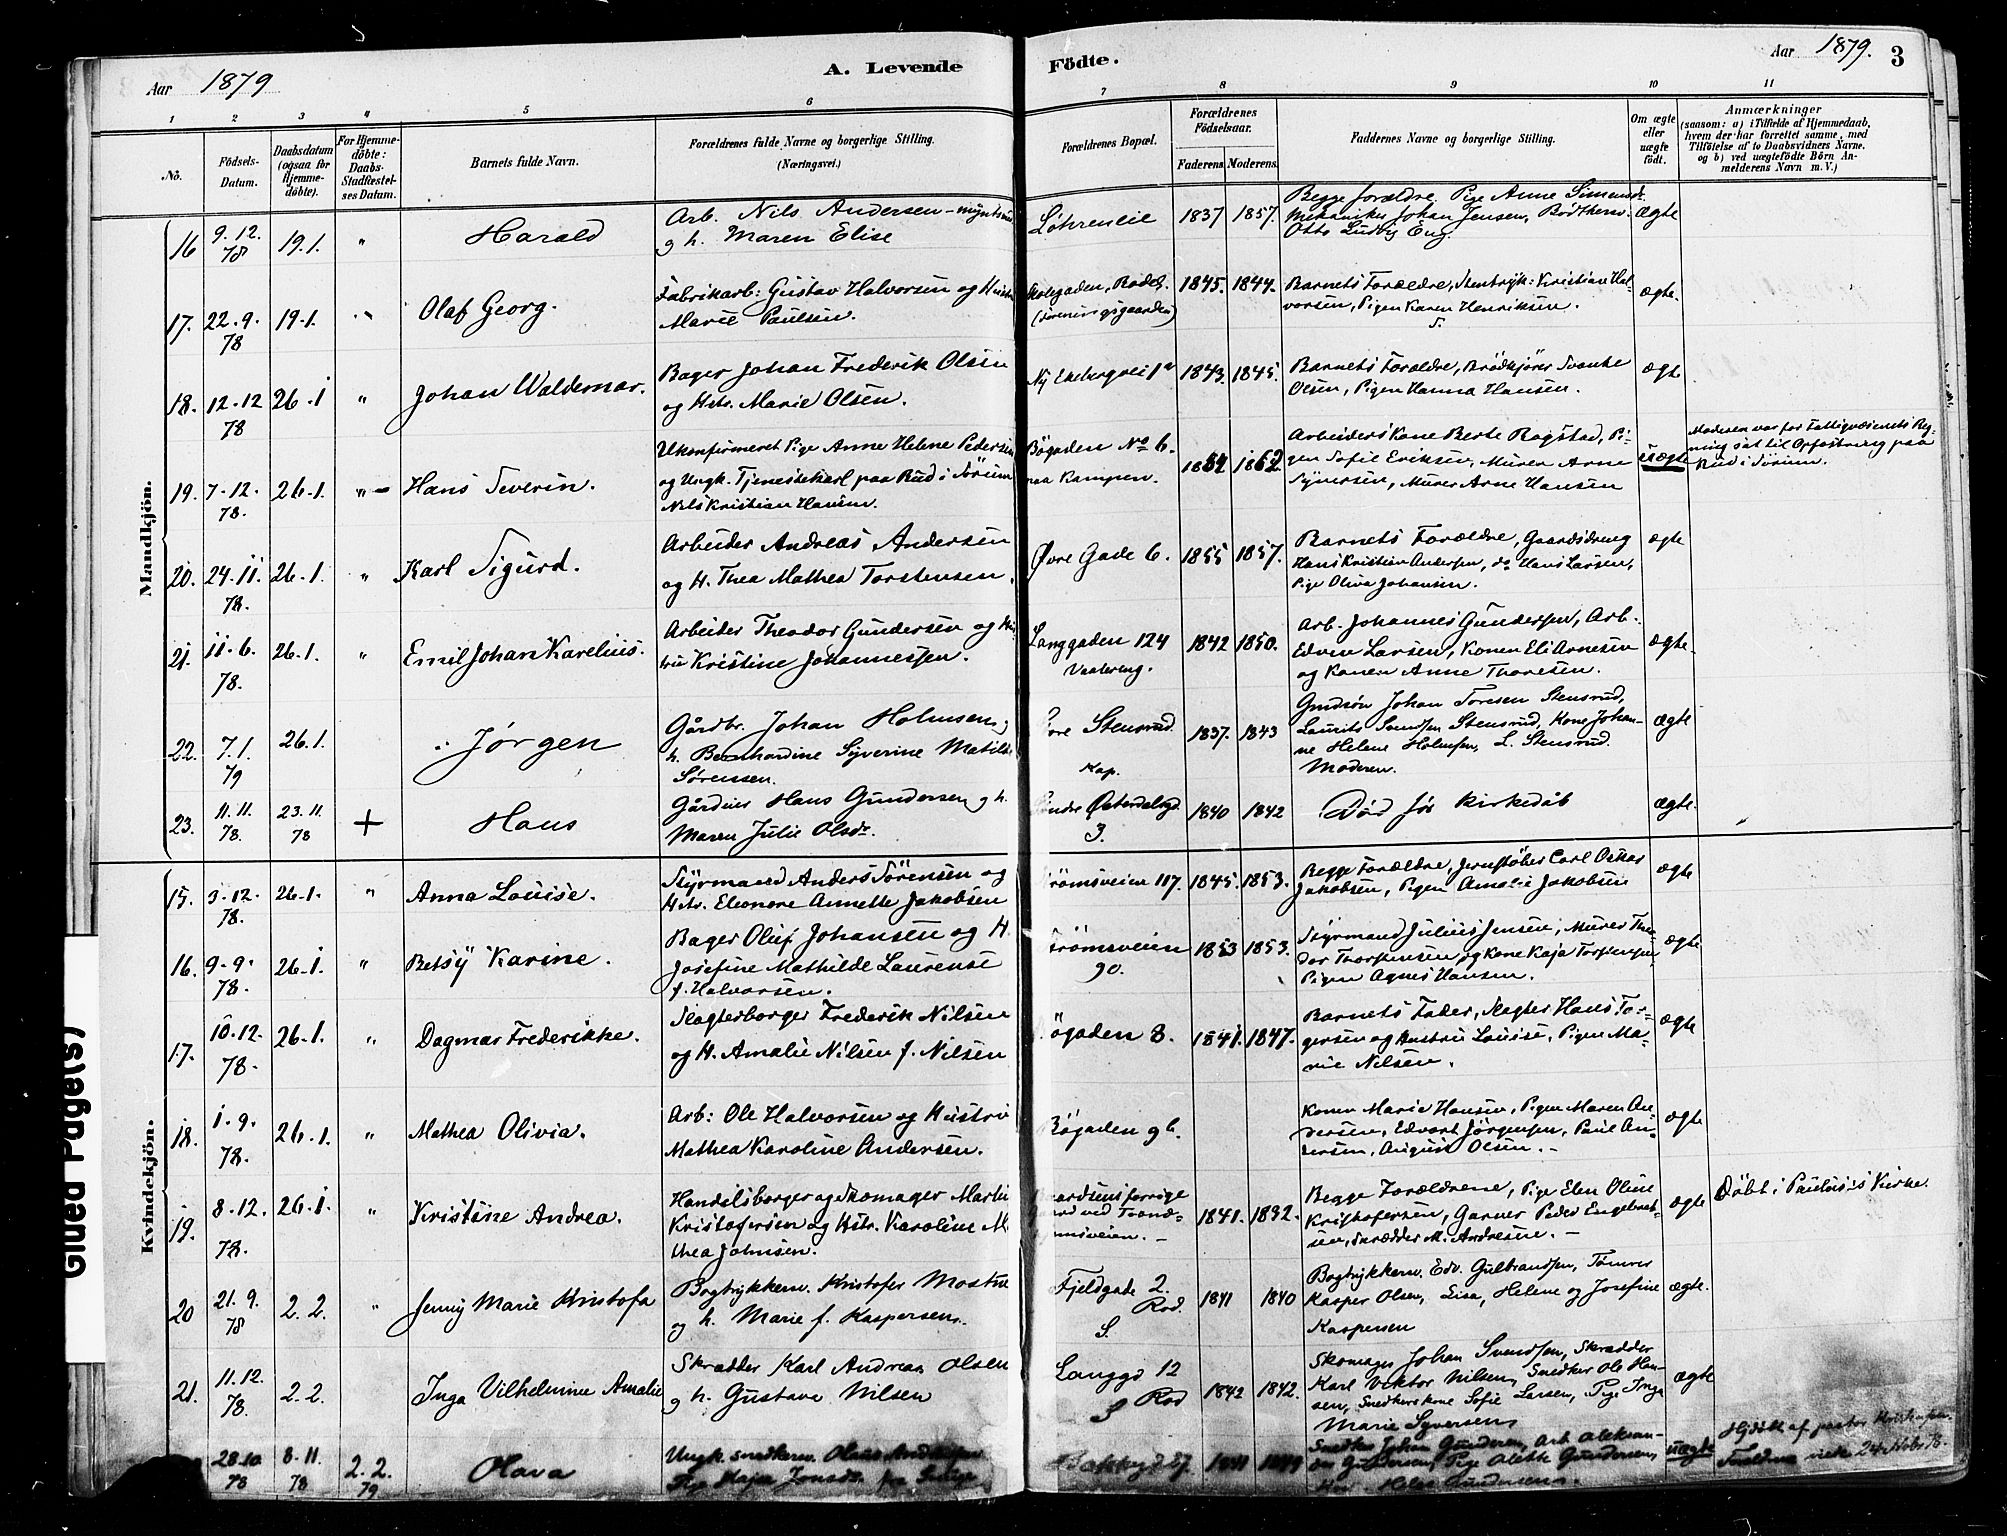 Aar 1879
A. Levende Födte.
Aar 1879. 3
1 2 3 4 5 6 7 8 9 10 11
No.
Födsels-Datum.
Daabsdatum (ogsaa for Hjemmedöbte).
For Hjemmedöbte: Daabs-Stadfæstelses Datum.
Barnets fulde Navn.
Forældrenes fulde Navne og borgerlige Stilling. (Næringsvei.)
Forældrenes Bopæl.
Forældrenes Födselsaar.
Faderens. Moderens.
Faddernes Navne og borgerlige Stilling.
Om ægte eller uægte födt.
Anmærkninger
(saasom: a) i Tilfælde af Hjemmedaab, hvem der har forrettet samme, med Tilföielse af to Daabsvidners Navne. og b) ved uægtefödte Börn Anmelderens Navn m. V.)
Mandkjön.
16 9.12.78 19.1. " Harald
Arb. Nils Andersen
og h. Maren Elise
1837 1857.
Begge forældre, Pige Anne
Mekaniker Johan Jensen,
Otto Ludvig Eng.
ægte
17. 22.9.78 19.1. " Olaf Georg.
Fabrikarb: Gustav Halvorsen og Hustru
Marie Paulsen.
1845. 1844.
Barnets Forældre, Stentryk: Kristian Halvorsen, Pigen Karen Henriksen.
ægte.
18. 12.12.78 26.1 " Johan Waldemar.
Bager Johan Frederik Olsen
og Hstr. Marie Olsen.
Ny Ekebergvei 1a 1843. 1845.
Barnets Forældre, Brödkjörer
Olsen, Pigen Hanna Hansen.
ægte
19. 7.12.78. 26.1. " Hans Severin.
Ukonfirmeret Pige Anne Helene Pedersen
og Ungk. Tjenestekarl paa Rud i Sörum
Nils Kristian Hansen.
Bögaden No 6. paa Kampen.
1862
Arbeiders Kone Berte Rogstad, Pigen Sofie Eriksen, Murer Arne
Syversen, Murer Arne Hansen
uægte
Moderen var for Fattigvæsenets Regning sat til Opfostring paa
Rud i Sörum.
20. 24.11.78. 26.1. " Karl Sigurd.
Arbeider Andreas Andersen
og H. Thea Mathea Torstensen.
Øvre Gade 6. 1855 1857.
Barnets Forældre, Gaardsdreng
Hans Kristian Andersen, do Hans Larsen,
Pige Oliva Johansen.
ægte
21. 11.6.78. 26.1. " Emil Johan Karelius.
Arbeider Theodor Gundersen og Hustru Kristine Johannessen.
Langgaden 124 Vaalereng. 1842 1850.
Arb. Johannes Gundersen, Arb.
Edvin Larsen, Konen Eli Arnesen
og Konen Anne Thoresen.
ægte.
22. 7.1.79 26.1. " Jørgen
Gårdbr. Johan Holmsen
h. Bernhardine Syverine Matilde
Sørensen.
Stensrud 1837. 1843
Gmdsøn Johan Toresen Stensrud,
Laurits Stensrud, Kone Johanne Helene Holmsen, L. Stensrud.
Moderen.
ægte
23. 11.11.78. 23.11 78 + Hans
Gårdeier Hans Gundersen og h.
Maren Julie Olsdr.
3. 1840 1842
Död før kirkedåb
ægte.
Kvindekjön.
15. 3.12.78. 26.1. " Anna Louise.
Styrmand Anders Sörensen og
Hstr. Eleonore Annette Jakobsen
Strömsveien 117. 1845. 1853.
Begge Forældre, Jernstöber Carl Oskar
Jakobsen, Pigen Amalie Jakobsen
ægte
16. 9.9.78. 26.1. " Betsy Karine.
Bager Oluf Johansen og H.
Josefine Mathilde Laurense
f. Halvorsen.
Strömsveien 90. 1853 1853.
Styrmand Julius Jensen, Murer Theodor Thorstensen og Kone Kaja Torstensen,
Pigen Agnes Hansen.
ægte
17. 10.12.78. 26.1. " Dagmar Frederikke.
Slagterborger Frederik Nilsen
og H. Amalie Nilsen f. Nilsen
Bögaden 8. 1841. 1847.
Barnets Fader, Slagter Hans Torgersen og Hustru Louise, Pigen Marie Nilsen.
ægte
18. 1.9.78. 26.1. " Mathea Olivia.
Arb: Ole Halvorsen og Hustru
Mathea Karoline Andersen.
Bögaden 9b.
Konen Marie Hansen, Pigen Maren Andersen, Edvart Jörgensen, Paul Andersen, August Olsen.
ægte
19. 8.12.78. 26.1. " Kristine Andrea.
Handelsborger og Skomager Martin
Kristofersen og Hstr. Karoline Mathea Johnsen.
1841. 1832.
Begge Forældrene, Pige Elen Oline
Kristofersen, Garver Peder Engebretsen, Skrædder M. Andresen.
ægte
Döbt i Paulus's Kirke.
20 21.9.78 2.2. " Jenny Marie Kristofa
Bogtrykkersv. Kristofer
og h. Marie f. Kaspersen.
Fjeldgade 2. Rod. S. 1841 1840
Bogtrykkersv. Edv. Gulbrandsen, Tømmer
Kasper Olsen, Lisa, Helene og Josefine
Kaspersen
ægte.
21. 11.12.78. 2.2. Inga Vilhelmine Amalie
Skrædder Karl Andreas Olsen
og h. Gustava Nilsen
Langgd 12 Rod S 1842 1842.
Skomager Johan Svendsen, Skrædder
Karl Viktor Nilsen, Snedker Ole Hansen, Snedkerskone Sofie Larsen, Pige Inga
Marie Syversen,
ægte
28.10 78 8.11 78 2.2. 79 Olava
Ungk. snedkersv.
Pige Kaja
Snedker Johan Gundersen, Arb. Gundersen, Pige Gundersen,
Gundersen.
uægte
Hjdøbt af pastor
Glued Page(s)